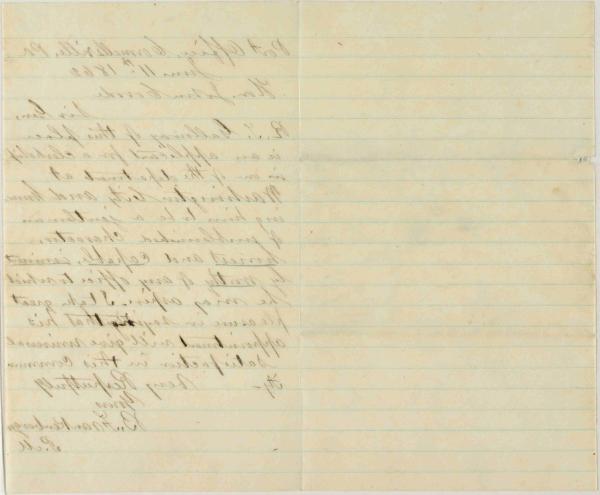 Post Office, Connellsville, Pa
June 11th 1862
Hon. John Covode
Sir
R. T. Galloway of this place
is an applicant for a clerkship
in one of the department at
Washington City and know
ing him to be a gentleman
of unblemished character,
honest and capable,
ly worthy of any office to which
he may aspire. I take great
pleasure in saying that his
appointment will give universal
satisfaction in this commun
ity
Very Respectfully
Yours
P.M.